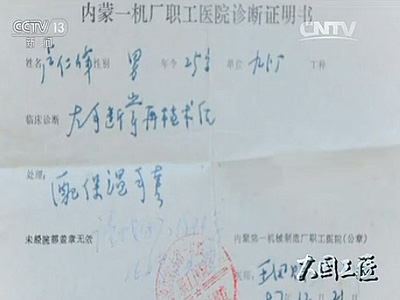 CCTV 13
新闻
CNTV
内蒙一机厂职工医院诊断证明书
姓名 卢仁峰 性别 男 年令 25岁 单位 九分厂 工种
临床诊断 左手断掌再植术后
处理:
配保温手套
未经院部盖章无效
内蒙第一机械制造厂职工医院(公章)
医师
大国工匠